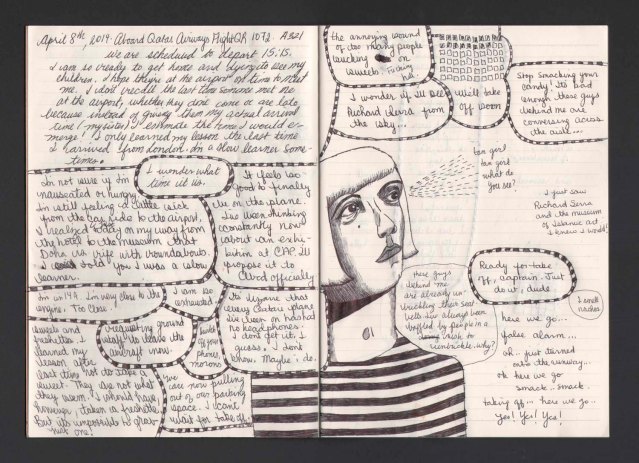 April 8th, 2014. Aboard Qatar Airways Flight QR 1072. A321
we are scheduled to depart 15:15.
I am so ready to get home and dying to see my
children. I hope they're at the airport on time to meet
me. I don't recall the last time someone met me
at the airport, whether they don't come or are late,
because instead of giving them my actual arrival
time I estimate the time I would
emerge. I only learned my lesson the last time
I arrived from London. I'm a slow learner some-
times.
I wonder what
time it is.
I'm not sure if I'm
nauseated or hungry.
I'm still feeling a little sick
from the cab ride to the airport.
I realized today on my way from
my hotel to the museum that
Doha is rife with roundabouts.
I told you I was a slow
learner.
It feels so
good to finally
be on the plane.
I've been thinking
constantly now
about an exhi-
bition at
propose it to
officially
I'm in 19A. I'm very close to the
engine. Too close.
I am so
exhausted
It's bizarre that
every Qatari plane
I've been on has had
no headphones.
I don't get it, I
guess. I don't
know. Maybe I do.
sweets and
freshettes. I
learned my
lesson after
last time not to take a
sweet. They are not what
they seem. I should have,
however, taken a freshette
but it's impossible to grab
just one!
requesting ground
staff to leave the
aircraft now.
your
phones,
morons
we are now pulling
out of our parking
space. I can't
wait for take off.
the annoying sound of
too many people
sucking on
sweets. Fucking
hell.
I wonder if I'll see
Richard Serra from
the sky...
We'll take
off soon
Stop smacking your
candy! It's bad
enough these guys
behind me are
conversing across
the aisle...
tan girl
tan girl
what do
you see?
I just saw
Richard Serra
and the museum
of Islamic art
I knew I would!
these guys
behind me
are already un-
buckling their seat
belts. I've always been
baffled by people in a
rush to
unbuckle. why?
Ready for take
off, captain. Just
do it, dude.
I smell
nachos
here we go...
false alarm...
ok.. just turned
onto the runway...
ok here we go
smack.. smack.
taking off... here we go..
Yes! Yes! Yes!